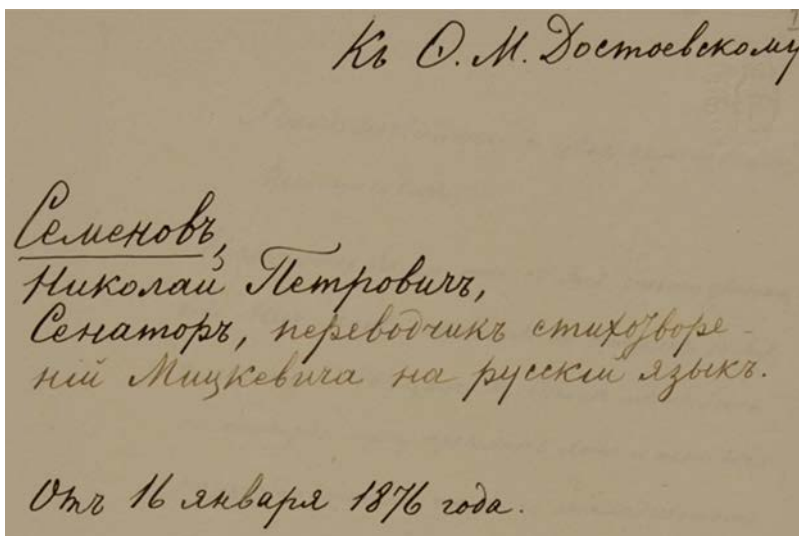 Къ Ѳ. М. Достоевскому
Семеновъ,
Николай Петровичъ,
Сенаторъ, переводчикъ стихотворе-
ній Мицкевича на русскій языкъ.
Отъ 16 января 1876 года.